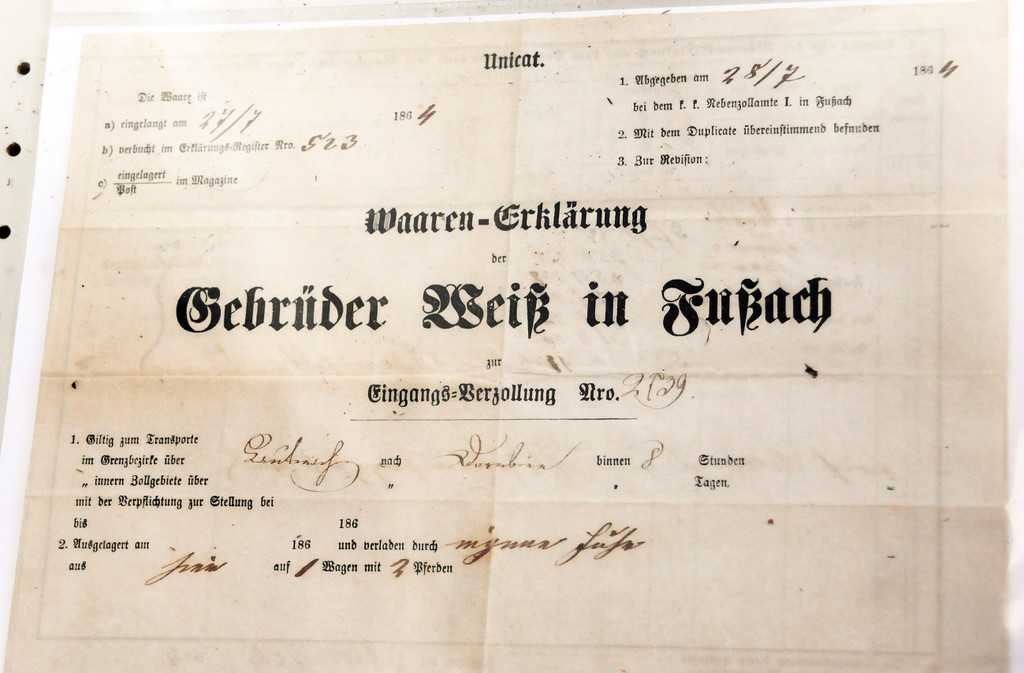 Unicat.
Die Waare ist
a) eingelangt am 27/7 1864
b) verbucht im Erklärungs-Register Nro. 523
c) eingelagert
Post
im Magazine
1. Abgegeben am 28/7 1864
bei dem k. k. Nebenzollamte I. in Fußach
2. Mit dem Duplicate übereinstimmend befunden
3. Zur Revision:
Waaren-Erklärung
der
Gebrüder Weiß in Fußach
zur
Eingangs-Verzollung Nro.
1. Giltig zum Transporte
im Grenzbezirke über nach Dornbirn binnen 8 Stunden
„ innern Zollgebiete über „ „ Tagen,
mit der Verpflichtung zur Stellung bei
bis 186
2. Ausgelagert am 186 und verladen durch eigene Fuhr
aus hier auf 1 Wagen mit 2 Pferden